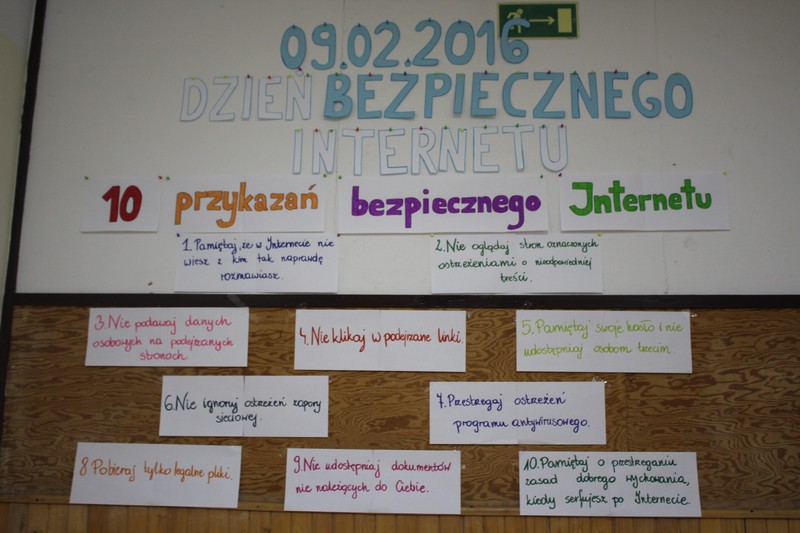 09.02.2016
DZIEŃ BEZPIECZNEGO
INTERNETU
10 przykazań bezpiecznego Internetu
1. Pamiętaj, że w Internecie nie
wiesz z kim tak naprawdę
rozmawiasz.
2. Nie oglądaj stron oznaczonych
ostrzeżeniami o nieodpowiedniej
treści.
3. Nie podawaj danych
osobowych na podejrzanych
stronach.
4. Nie klikaj w podejrzane linki.
5. Pamiętaj swoje hasło i nie
udostępniaj osobom trzecim
6. Nie ignoruj ostrzeżeń zapory
sieciowej.
7. Przestrzegaj ostrzeżeń
programu antywirusowego.
8 Pobieraj tylko legalne pliki.
9. Nie udostępniaj dokumentów
nie należących do Ciebie.
10. Pamiętaj o przestrzeganiu
zasad dobrego wychowania,
kiedy serfujesz po Internecie.